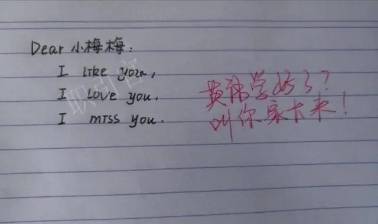 Dear 小梅梅：
I like you,
I love you.
I miss you.
英语学好了？
叫你家长来！